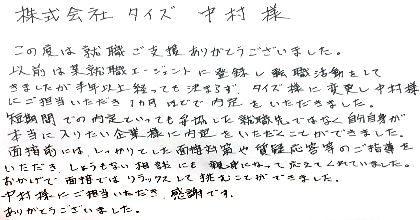 株式会社 タイズ 中村 様
この度は就職ご支援ありがとうございました。
以前は某就職エージェントに登録し転職活動をして
きましたが半年以上経っても決まらず、タイズ様に変更し中村様
にご担当いただき1カ月ほどで内定をいただきました。
短期間での内定といっても妥協した就職先ではなく自分自身が
本当に入りたい企業様に内定をいただくことができました。
面接前には、しっかりとした面接対策や質疑応答等のご指導を
いただき、しょうもない相談にも親身になって応えてくれていました。
おかげで面接ではリラックスして挑むことができました。
中村様にご担当いただき、感謝です。
ありがとうございました。